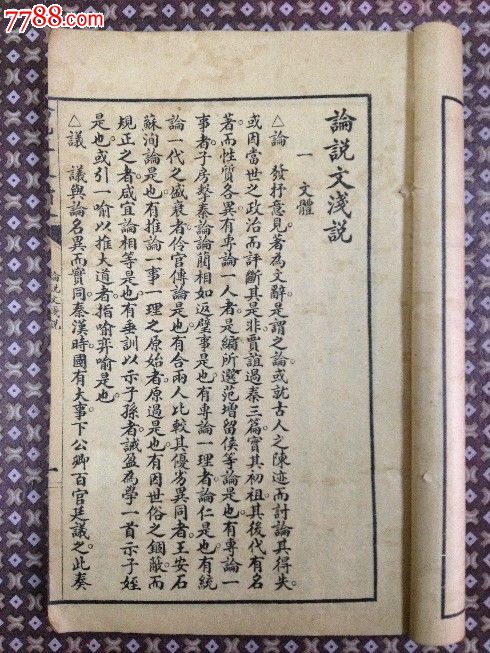 7788.com
論說文淺說
一　文體
△論　發抒意見著為文辭是謂之論或就古人之陳迹而討論其得失。
或因當世之政治而評斷其是非賈誼過秦三篇實其初祖其後代有名
著而性質各異有專論一人者是編所選范增留侯等論是也有專論一
事者子房擊秦論論藺相如返璧事是也有專論一理者論仁是也有統
論一代之盛衰者伶官傳論是也有合兩人比較其優劣異同者王安石
蘇洵論是也有推論一事一理之原始者原過是也有因世俗之錮蔽而
規正之者咸宜論相等是也有垂訓以示子孫者誡盈為學一首示子姪
是也或引一喻以推大道者指喻弈喻是也
△議　議與論名異而實同秦漢時國有大事下公卿百官廷議之此奏
論說文淺說